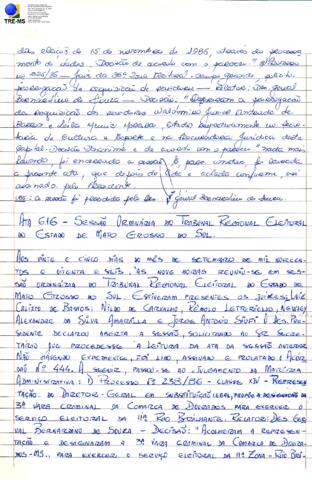 TRE-MS
das eleições de 15 de novembro de 1986, através do processa-
mento de dados. Decisão: de acordo com o parecer.
nº 226/86 - Juiz da 36ª Zona Eleitoral - Campo Grande, solicita
prorrogação de requisição de servidores - Relator: Des. Gerval
Bernardino de Souza - Decisão: "Deferiram a prorrogação
da requisição dos servidores
e lotados respectivamente na Secre-
taria de Cultura e Esporte e na Procuradoria Jurídica desta
Capital. Decisão unânime e de acordo com o parecer." Nada mais
havendo, foi encerrada a sessão. E, para constar, foi lavrada
a presente ata, que depois de lida e achada conforme, vai
assinada pelo Presidente.
a sessão foi presidida pelo Des. Gerval Bernardino de Souza.
ATA 616 - SESSÃO ORDINÁRIA DO TRIBUNAL REGIONAL ELEITORAL
DO ESTADO DE MATO GROSSO DO SUL.
AOS VINTE E CINCO DIAS DO MÊS DE SETEMBRO DE MIL NOVECEN-
TOS E OITENTA E SEIS, ÀS NOVE HORAS REUNIU-SE EM SES-
SÃO ORDINÁRIA DO TRIBUNAL REGIONAL ELEITORAL DO ESTADO DE
MATO GROSSO DO SUL. ESTIVERAM PRESENTES OS JUÍZES: LUIZ
CALIXTO DE BASTOS; NILDO DE CARVALHO, RÊMOLO LETTERIELLO,
ALEXANDRE DA SILVA AMARILLA E JORGE ANTÔNIO SIUFI. O DES. PRE-
SIDENTE DECLAROU ABERTA A SESSÃO, SOLICITANDO AO SR. SECRE-
TÁRIO QUE PROCEDESSE A LEITURA DA ATA DA SESSÃO ANTERIOR.
NÃO HAVENDO EXPEDIENTE, FOI LIDO, ASSINADO E PROLATADO: ACÓR-
DÃO Nº 444. A SEGUIR, PASSOU-SE AO JULGAMENTO DA MATÉRIA
ADMINISTRATIVA: 1) PROCESSO Nº 238/86 - CLASSE XIV - REPRESEN-
TAÇÃO DO DIRETOR-GERAL EM SUBSTITUIÇÃO LEGAL, PROPÕE A DESIGNAÇÃO DA
3ª VARA CRIMINAL DA COMARCA DE DOURADOS PARA EXERCER O
SERVIÇO ELEITORAL DA 11ª RIO BRILHANTE. RELATOR: DES. GER-
VAL BERNARDINO DE SOUZA - DECISÃO: "ACOLHERAM A REPRESEN-
TAÇÃO E DESIGNARAM A 3ª VARA CRIMINAL DA COMARCA DE DOURA-
DOS-MS., PARA EXERCER O SERVIÇO ELEITORAL DA 11ª ZONA - RIO BRI-